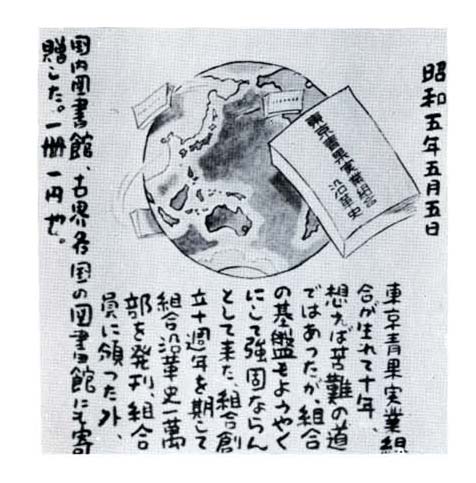 昭和五年五月五日
東京青果実業組合
沿革史
東京青果実業組
合が生れて十年、
想えば苦難の道
ではあったが、組合
の基盤もようやく
にして強固ならん
として来た、組合創
立十週年を期して
組合沿革史一萬
部を発刋、組合
員に頒った外、
国内図書館、世界各国の図書館にも寄
贈した。一冊一円也。